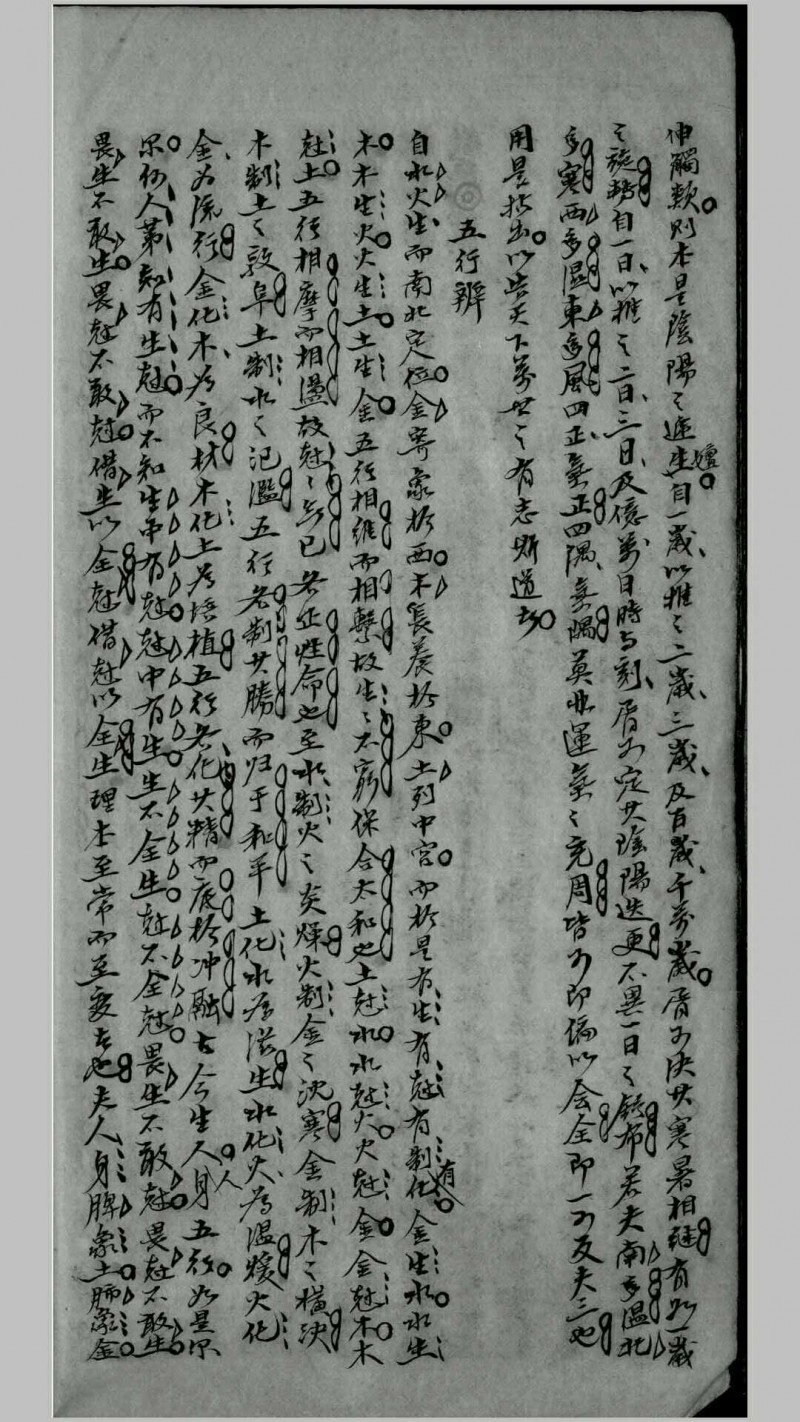 伸觸類則本是陰陽之遞嬗自一歲以推之二歲三歲及百歲千萬歲厝可决其寒暑相繼有如一歲
之旋轉自一日以推之二日三日及億萬日時与刻厝可定其陰陽迭更不異一日之錯布若夫南多溫北
多寒西多濕東多風四正無正四隅無隅莫非運氣之充周皆可即偏以会全即一可反夫三也
用是拈出以告天下萬世之有志斯道者
五行辨
自水火生而南北定位金寄象於西木長養於東土列中宮而於是有生有尅有制有化金生水水生
木木生火火生土土生金五行相維而相繫故生生不窮保合太和也土尅水水尅火火尅金金尅木木
尅土五行相摩而相盪故尅之与已各正性命也至水制火之炎燥火制金之沈寒金制木之橫决
木制土之敦阜土制水之氾濫五行各制其勝而归于和平土化水為滋生水化火為溫煖火化
金为流行金化木為良材木化土為培植五行各化其精而底於冲融古今生人人身五行如是尔
尔何人第知有生尅而不知生中有尅尅中有生生不全生尅不全尅畏生不敢尅畏尅不敢生
畏生不敢生畏尅不敢尅借生以全尅借尅以全生理本至常而至变者也夫人身脾象土肺象金